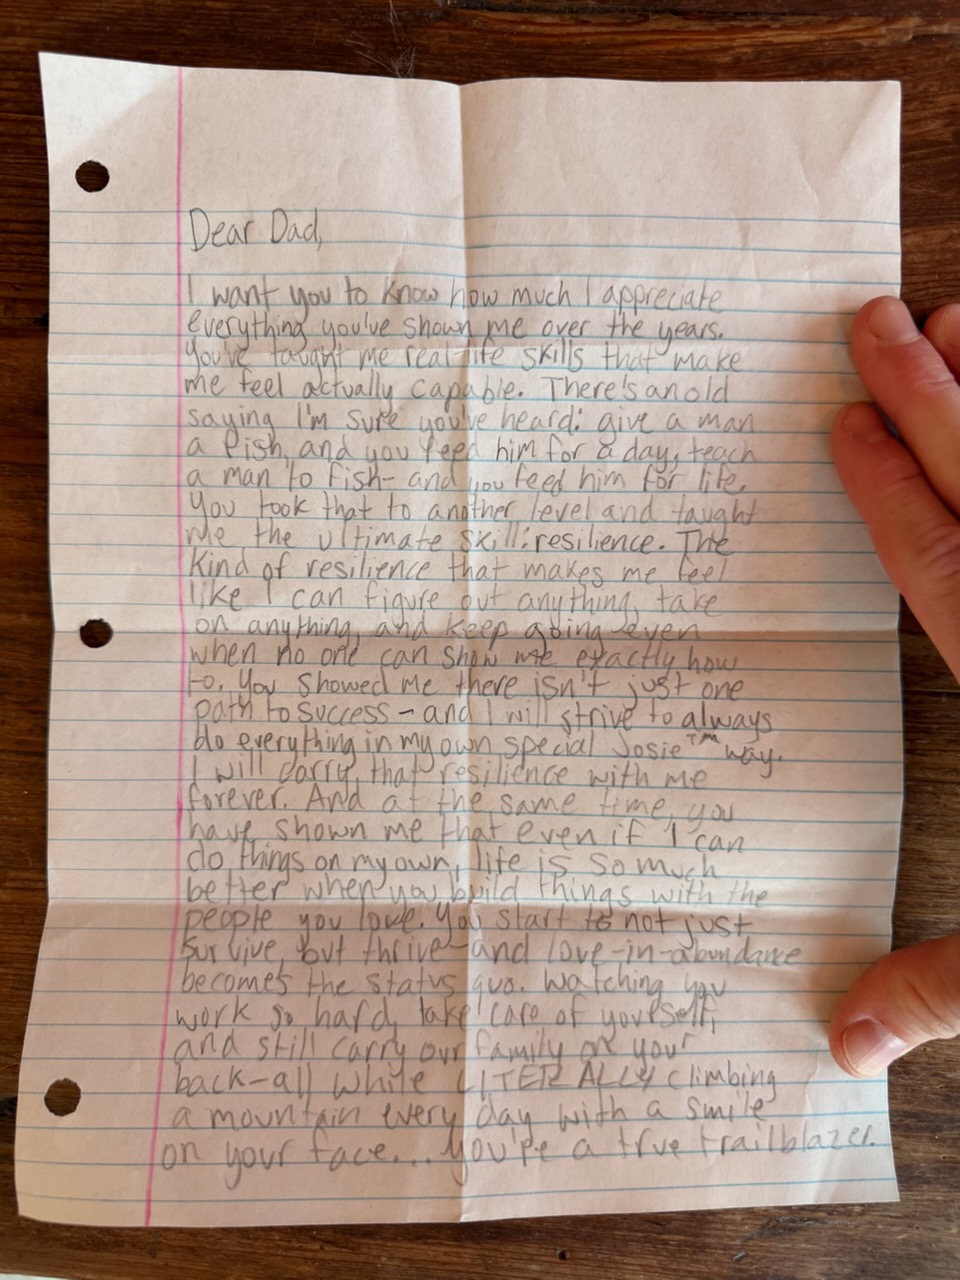 Dear Dad,
I want you to know how much I appreciate
everything you've shown me over the years.
You've taught me real-life skills that make
me feel actually capable. There's an old
saying I'm sure you've heard: give a man
a fish, and you feed him for a day, teach
a man to fish- and you feed him for life.
You took that to another level and taught
me the ultimate skill: resilience. The
kind of resilience that makes me feel
like I can figure out anything, take
on anything, and keep going even
when no one can show me exactly how
to. You showed me there isn't just one
path to success - and I will strive to always
do everything in my own special Josie™ way.
I will carry that resilience with me
forever. And at the same time, you
have shown me that even if I can
do things on my own, life is so much
better when you build things with the
people you love. You start to not just
survive, but thrive - and love-in-abundance
becomes the status quo. Watching you
work so hard, take care of yourself,
and still carry our family on your
back-all while LITERALLY climbing
a mountain every day with a smile
on your face... you're a true trailblazer.